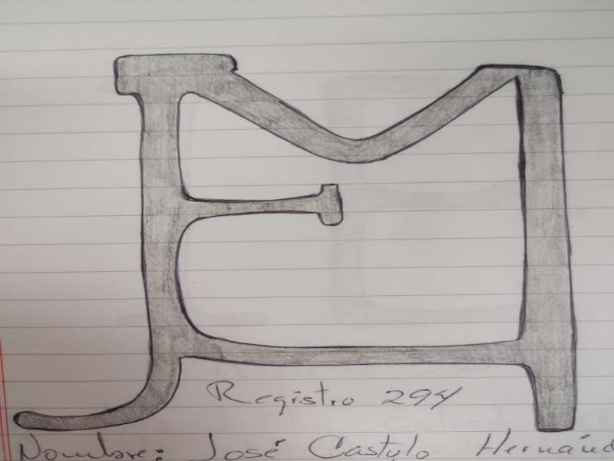 Registro 294
Nombre: José Castulo Hernánd